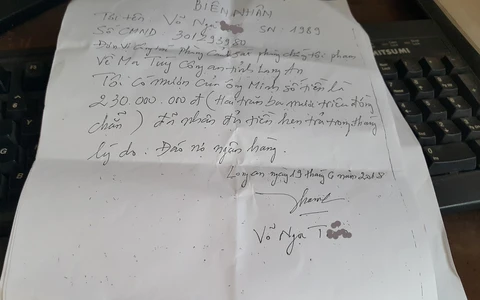 BIÊN NHẬN
Tôi tên Võ Ngọc SN: 1989
Số CMND 301293950
Đơn vị công tác phòng cảnh sát phòng chống tội phạm
Về Ma Túy Công an tỉnh Long An
Tôi có mượn của ông Minh số tiền là
230.000.000đ (Hai trăm ba mươi triệu đồng
chẵn) đã nhận đủ tiền hẹn trả trong tháng
lý do. Đáo nợ ngân hàng.
Long an ngày 19 tháng 6 năm 2018
Võ Ngọc T
MITSUMI